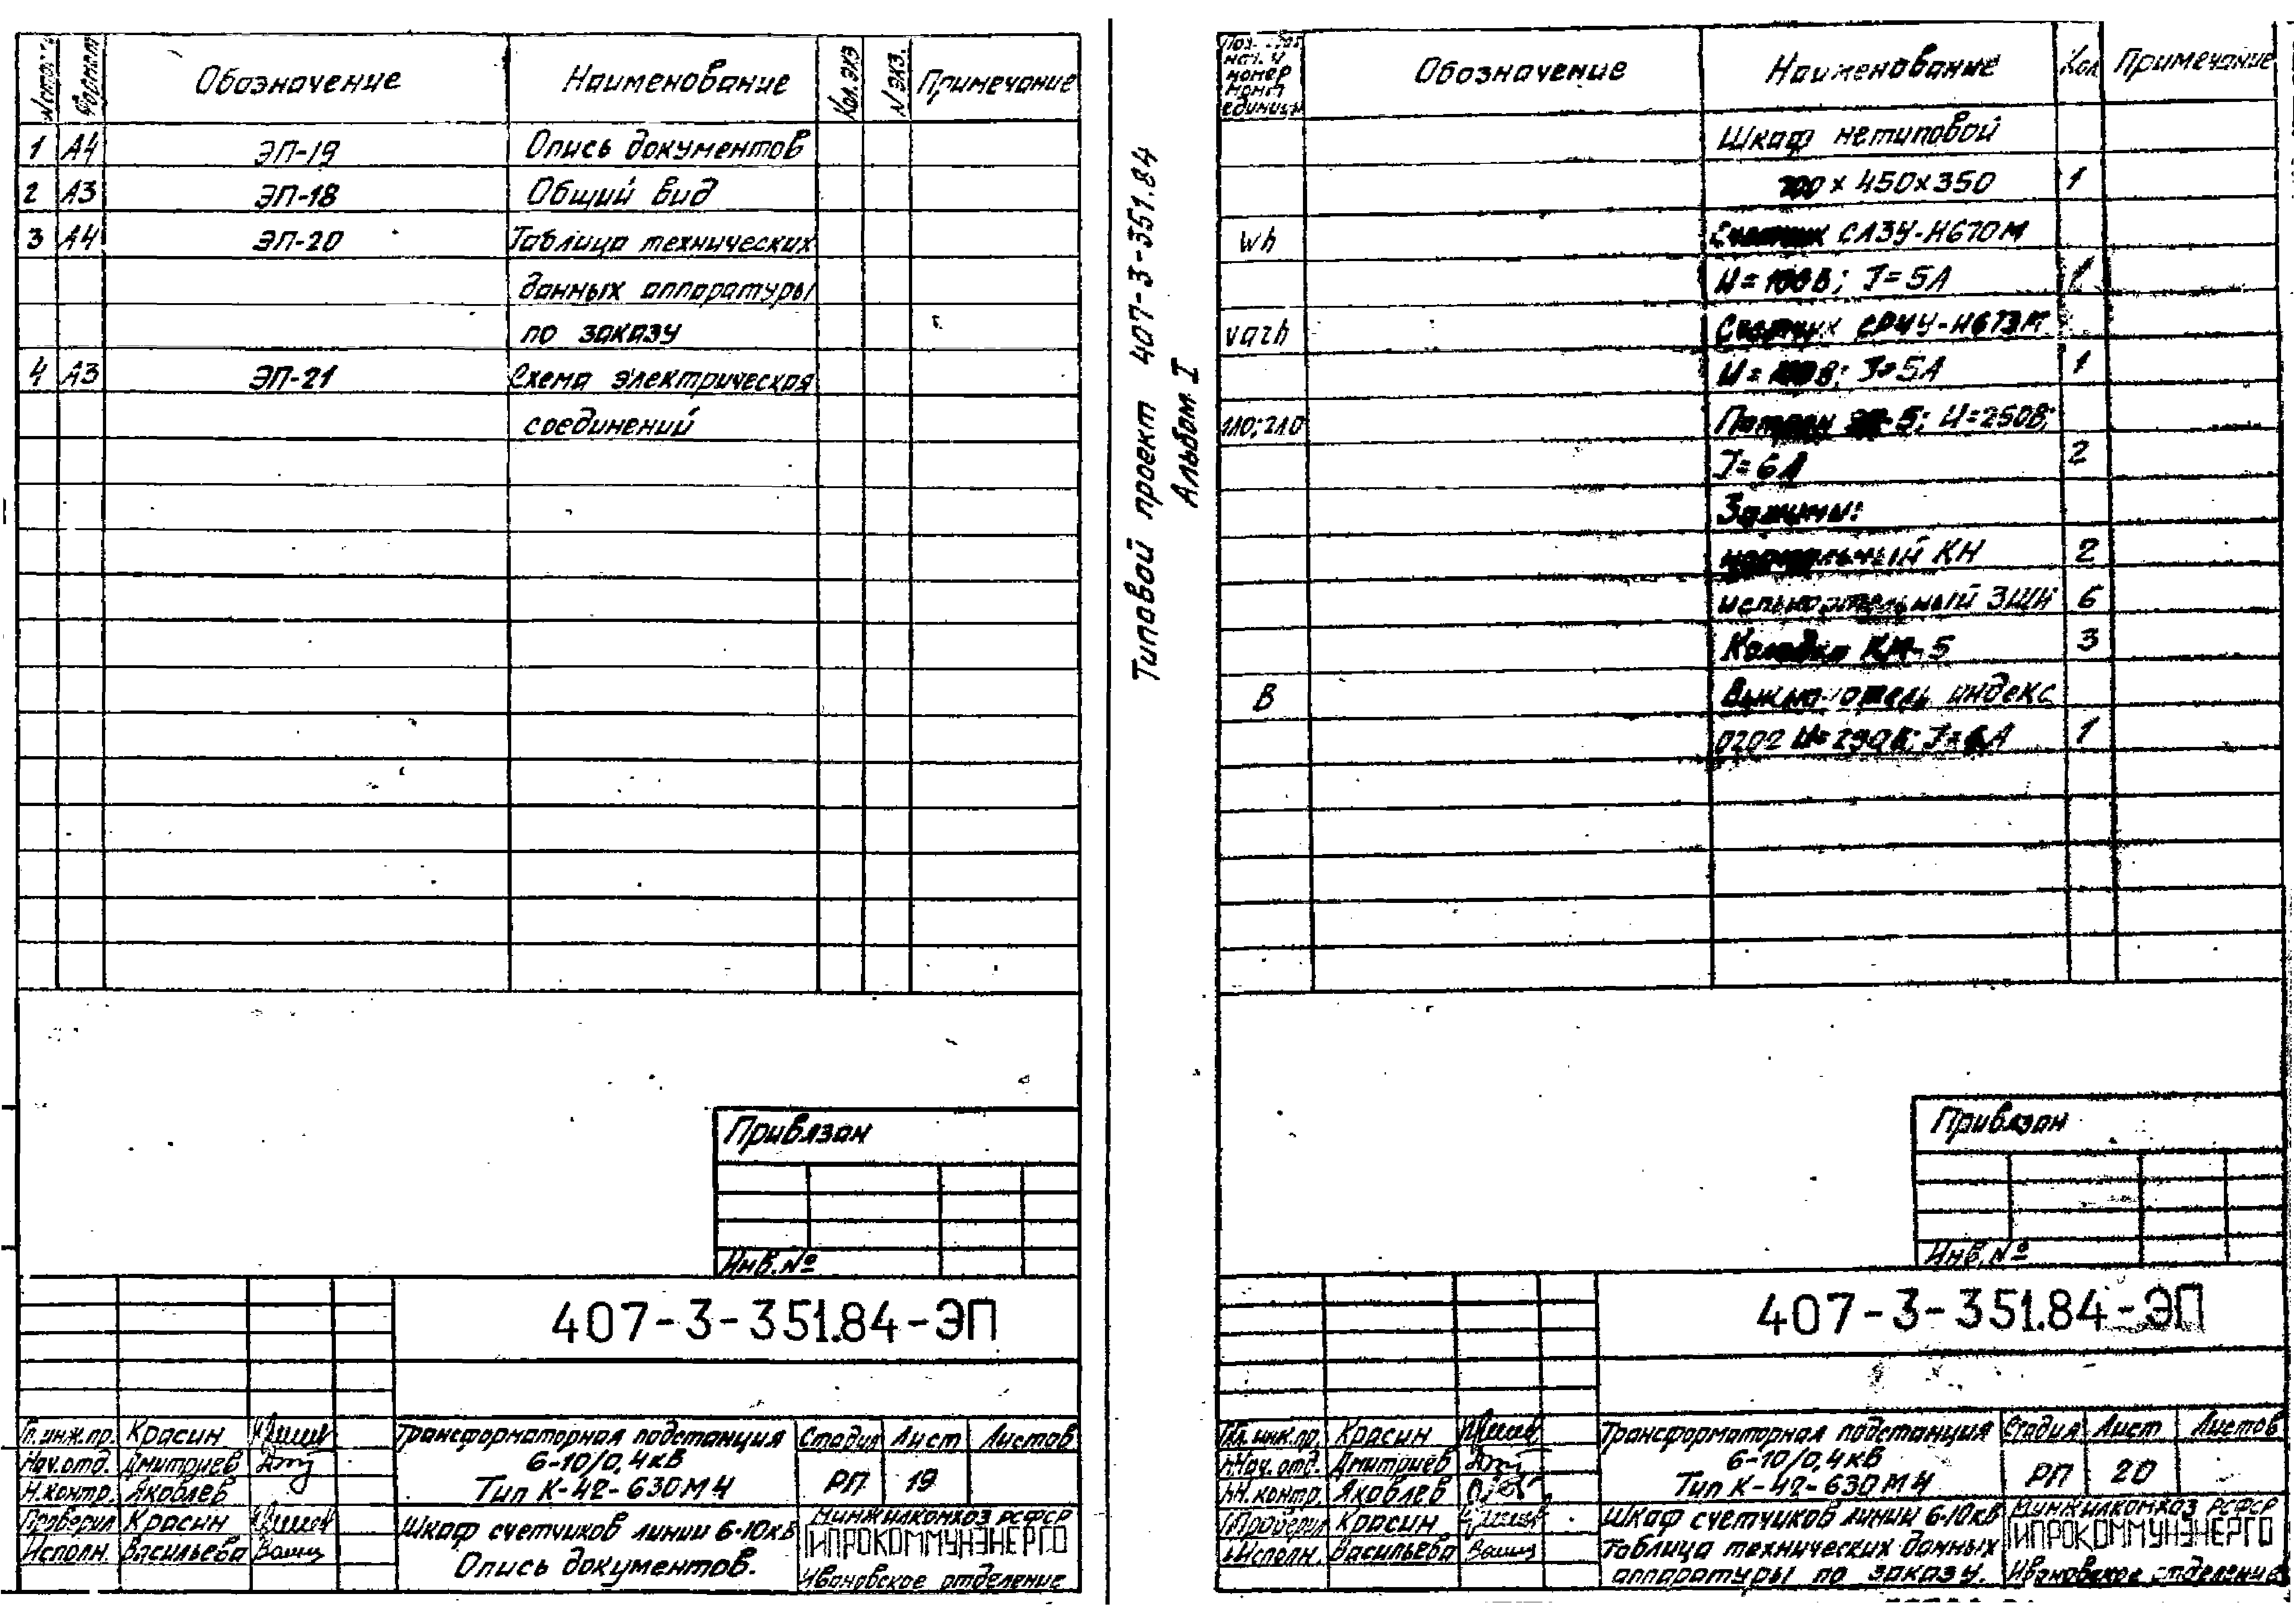 Формат Обозначение Наименование Кол. экз N экз. Примечание
1 А4 ЭП-19 Опись документов
2 А3 ЭП-18 Общий вид
3 А4 ЭП-20 Таблица технических
данных аппаратуры
по заказу
4 А3 ЭП-21 Схема электрическая
соединений
Привязан
Инв. №
407-3-351.84-ЭП
Гл. инж. пр. Красин
Нач. отд. Дмитриев
Н. контр. Яковлев
Проверил Красин
Исполн. Васильева
Трансформаторная подстанция
6-10/0,4кВ
Тип К-42-630М4
Стадия Лист Листов
РП 19
Шкаф счетчиков линии 6-10кВ
Опись документов.
Минжилкомхоз РСФСР
ГИПРОКОММУНЭНЕРГО
Ивановское отделение
Типовой проект 407-3-351.84
Альбом I
Поз.
нач. и
номер
монт
единицы
Обозначение Наименование Кол Примечание
Шкаф нетиповой
700 х 450х350 1
Wh Счетчик СА3У-И670М
U=100В; J=5А 1
varh Счетчик СР4У-И673М
U=100В; J=5А 1
1Л0; 2Л0 Патрон -5; U=250В;
J=6А 2
Зажимы:
нормальный КН 2
испытательный ЗШИ 6
Колодка КМ-5 3
В Выключатель индекс
0202 U=250В; J=6А 1
Привязан
Инв. №
407-3-351.84-ЭП
Гл. инж. пр. Красин
Нач. отд. Дмитриев
Н. контр. Яковлев
Проверил Красин
Исполн. Васильева
Трансформаторная подстанция
6-10/0,4кВ
Тип К-42-630М4
Стадия Лист Листов
РП 20
Шкаф счетчиков линии 6-10кВ
Таблица технических данных
аппаратуры по заказу.
Минжилкомхоз РСФСР
ГИПРОКОММУНЭНЕРГО
Ивановское отделение